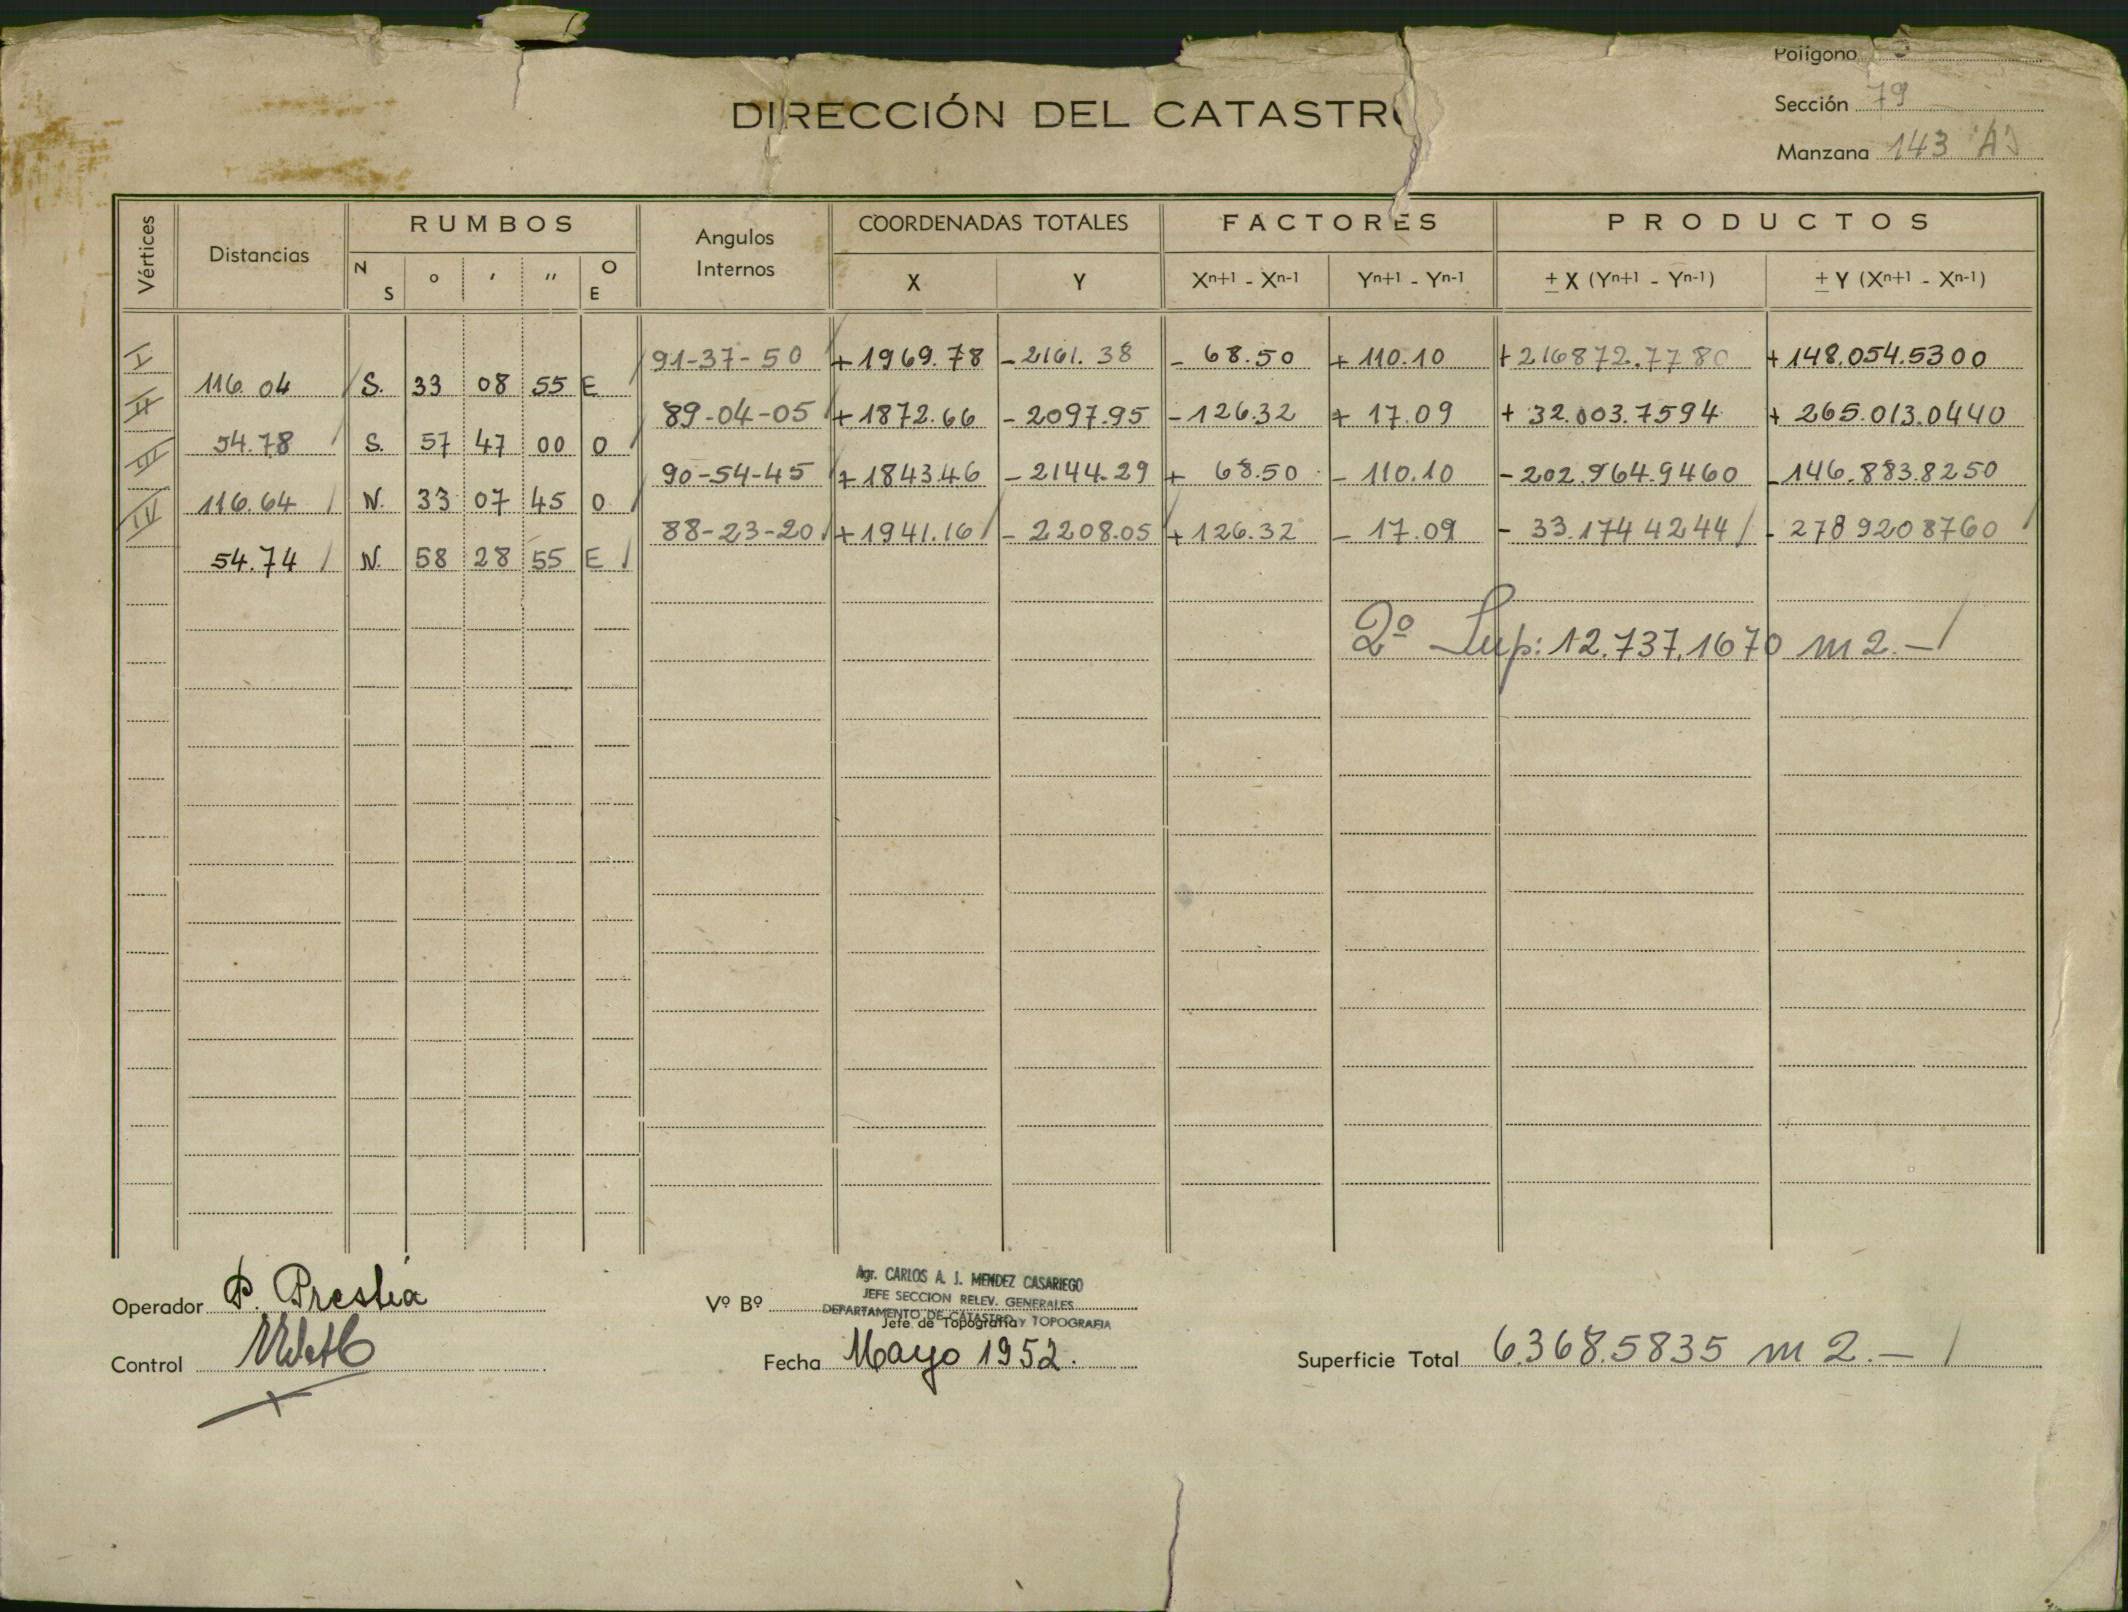 Polígono
DIRECCIÓN DEL CATASTRO
Sección 79
Manzana 143 "A"
Vértices
Distancias
RUMBOS
N S
o
'
"
O E
Angulos Internos
COORDENADAS TOTALES
X
Y
FACTORES
Xn+1 - Xn-1
Yn+1 - Yn-1
PRODUCTOS
± X (Yn+1 - Yn-1)
± Y (Xn+1 - Xn-1)
I 91-37-50 +1969.78 -2161.38 - 68.50 + 110.10 +216872.7780 +148.054.5300
116.04 S. 33 08 55 E
II 89-04-05 +1872.66 -2097.95 -126.32 + 17.09 + 32.003.7594 + 265.013.0440
54.78 S. 57 47 00 O
III 90-54-45 +1843.46 -2144.29 + 68.50 - 110.10 -202.964.9460 -146.883.8250
116.64 N. 33 07 45 O
IV 88-23-20 +1941.16 - 2208.05 +126.32 - 17.09 - 33.174 4244 - 278 920 8760
54.74 N. 58 28 55 E
2º Sup: 12.737.1670 m 2.-
Operador P. Prestia
Control
Vº Bº
Agr. CARLOS A. J. MENDEZ CASARIEGO
JEFE SECCION RELEV. GENERALES
DEPARTAMENTO DE CATASTRO y TOPOGRAFIA
Jefe de Topografía
Fecha Mayo 1952.
Superficie Total 6.368.5835 m 2.-